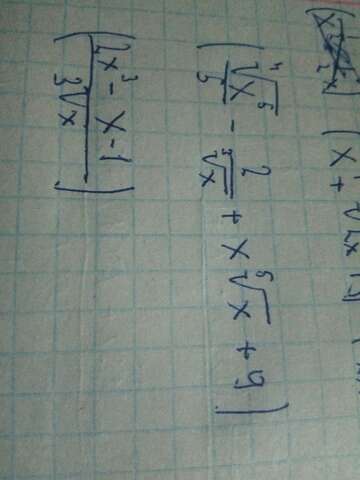 ( ⁴√x⁵/5 - 2/³√x + x ⁵√x + 9 )
( 2x³ - x - 1 / 3√x )